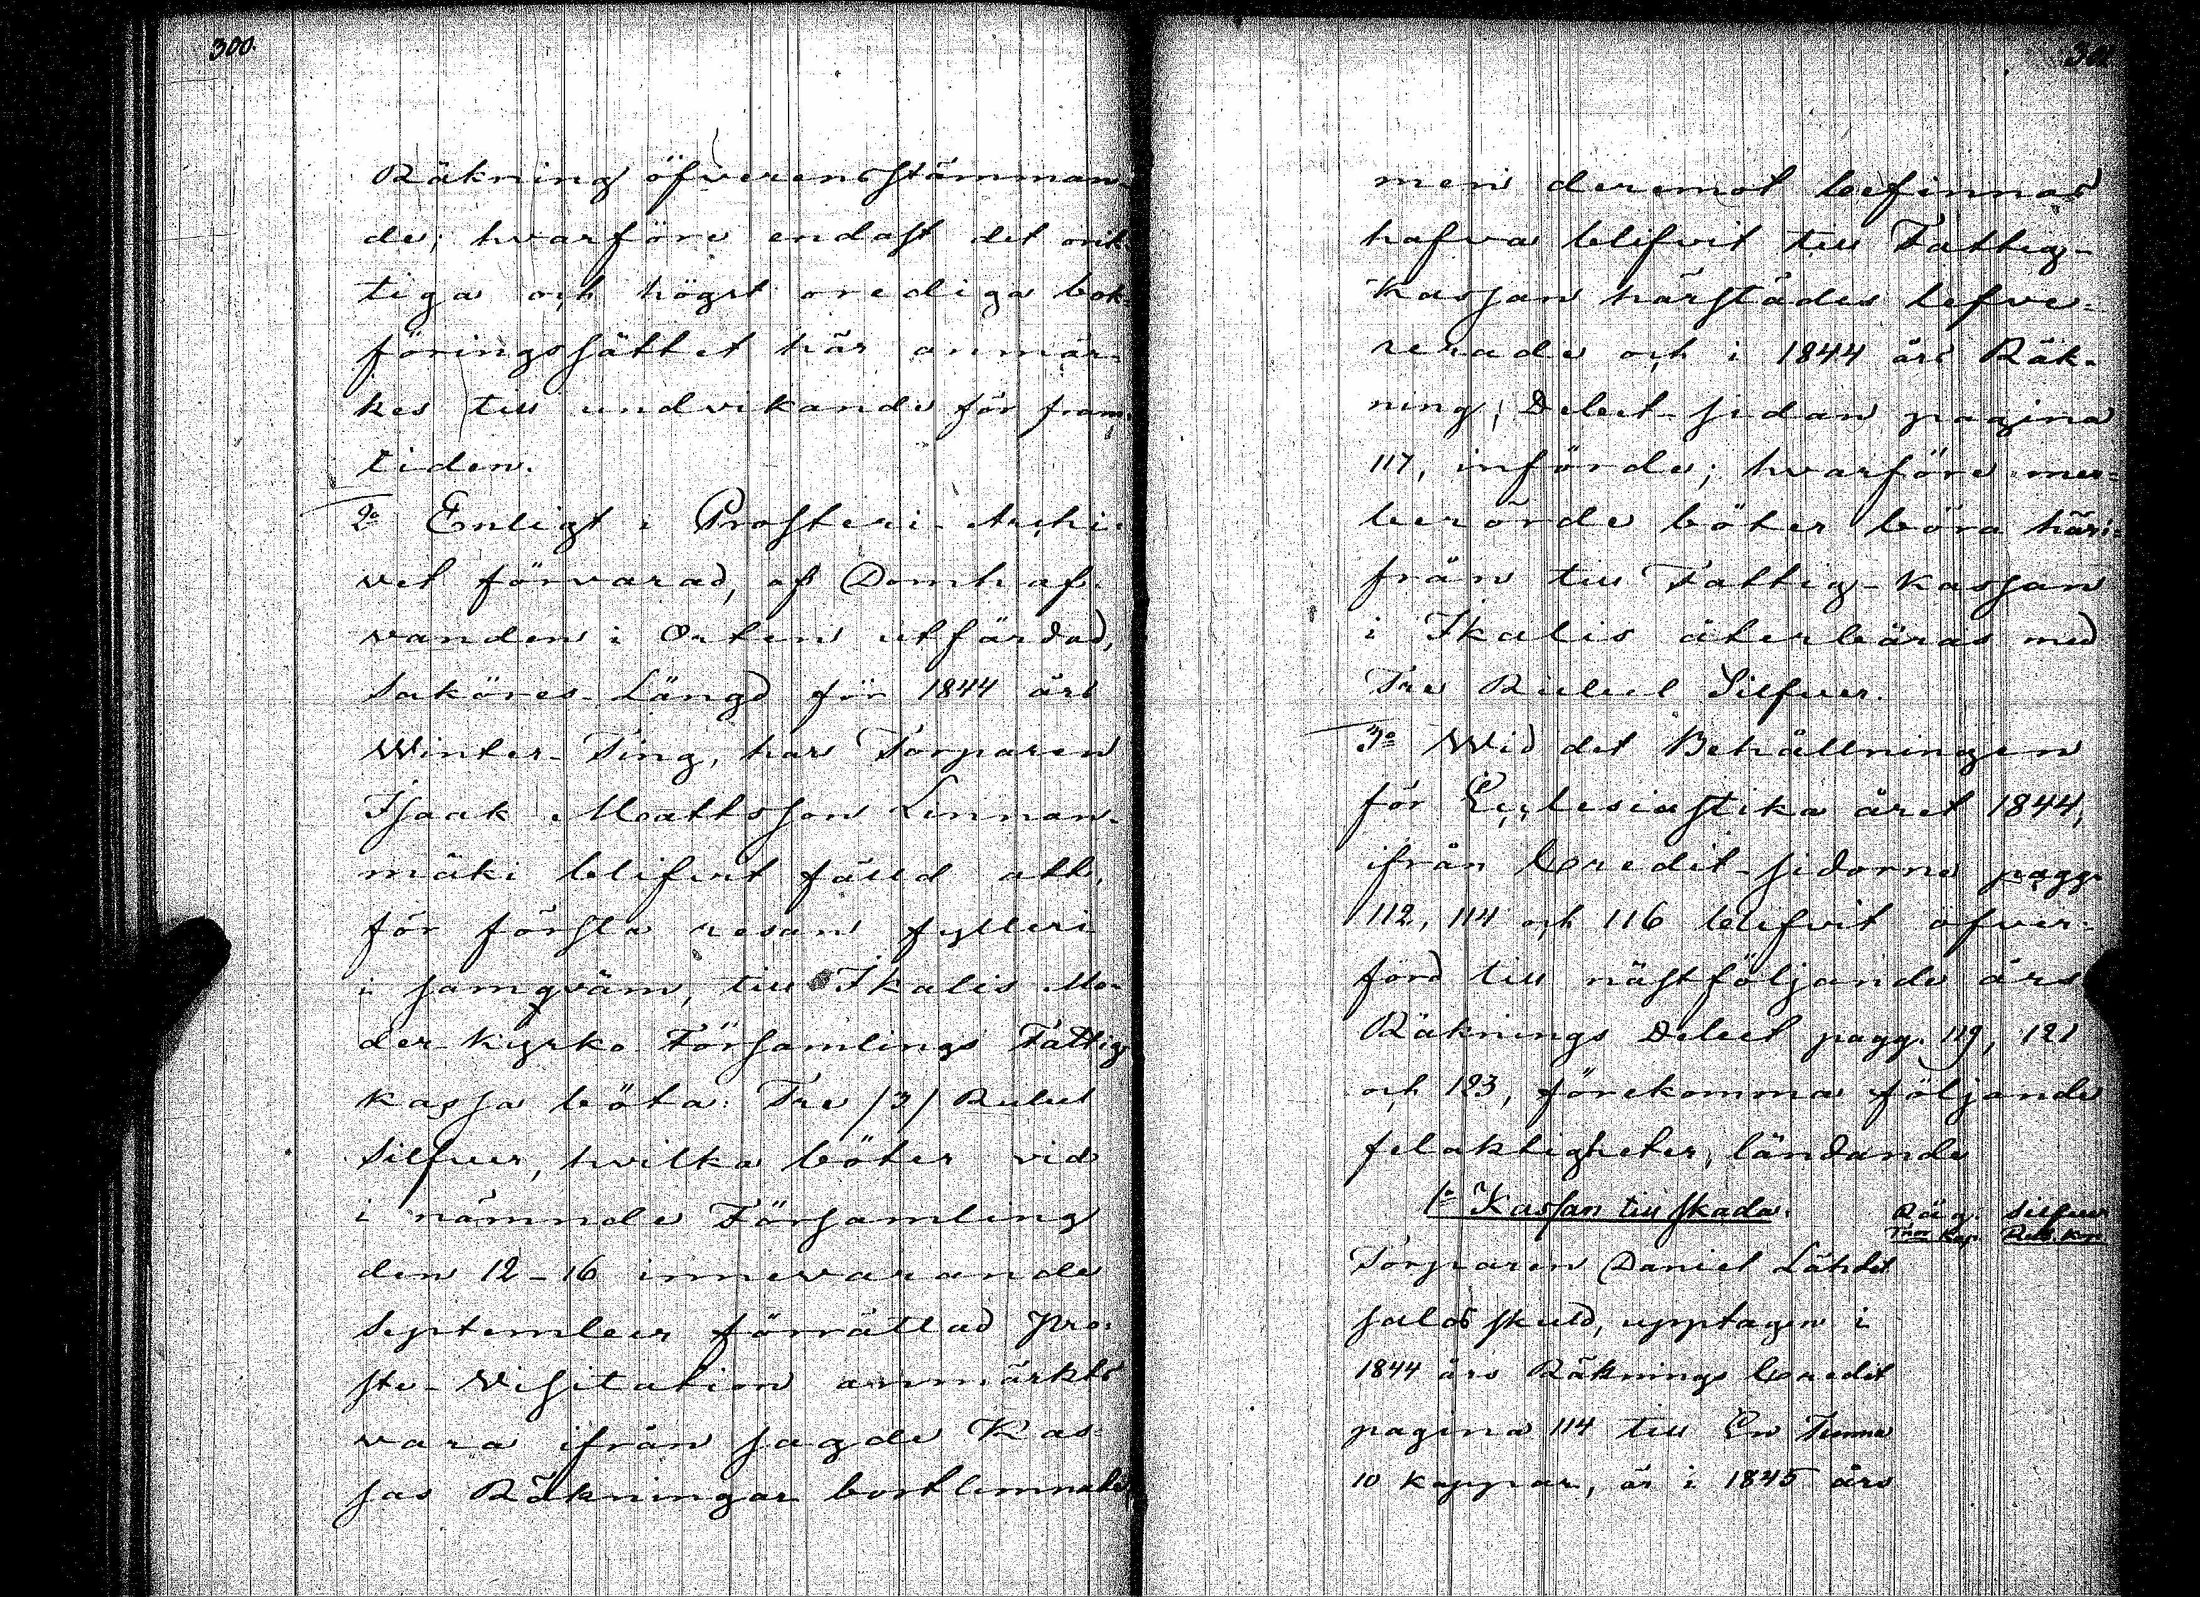 300.
Räkning öfverensstämman-
de; hvarföre endast det orik-
tiga och högst orediga bok-
föringssättet här anmär-
kes till undvikande för fram-
tiden.
2o Enligt i Prosteri-Archi-
vet förvarad, af Domhaf-
vanden i Orten utfärdad,
Saköres-Längd för 1844 års
Winter-Ting, har Torparen
Isaak Mattsson Linnan-
mäki blifvit fälld att,
för första resan fylleri
i samqväm, till Ikalis Mo-
der-Kyrko-Församlings Fattig-
kassa böta Tre /3/ Rubel
Silfver, hvilka böter vid
i nämnde Församling
den 12-16 innevarande
September förrättad Pro-
ste-Visitation anmärkts
vara ifrån sagde Kas-
sas Räkningar bortlemnade,
301
men deremot befinnas
hafva blifvit till Fattig-
Kassan härstädes lefve-
rerade och i 1844 års Räk-
ning, Debet-sidan pagina
117, införde; hvarföre mer-
berörde böter böra häri-
från till Fattig-Kassan
i Ikalis återbäras med
Tre Rubel Silfver.
3o Wid det Behållningen
för Ecclesiastika året 1844,
ifrån Credit-sidorna pagg.
112, 114 och 116 blifvit öfver-
förd till nästföljande års
Räknings Debet pagg. 119, 121
och 123, förekomma följande
felaktigheter, ländande
1o Kassan till skada. Råg. Silfver
Tnor Kap. Rub. Kop.
Torparen Daniel Lähdet
salos skuld, upptagen i
1844 års Räknings Credit
pagina 114 till En Tunna
10 kappar, är i 1845 års